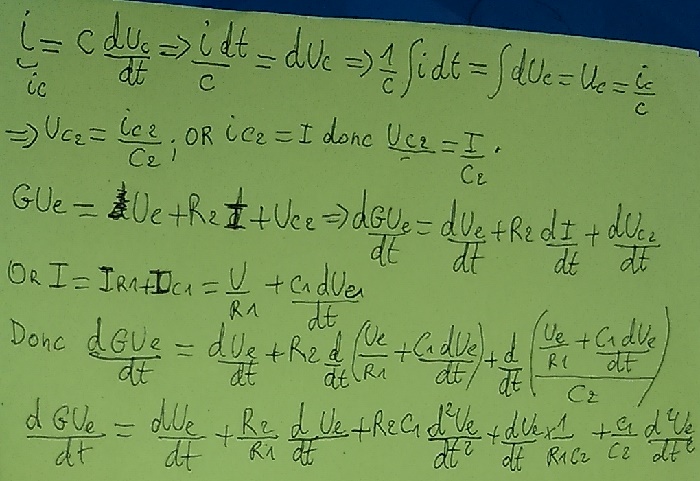 i = C dUc/dt => i dt/C = dUc => 1/C ∫ i dt = ∫ dUc = Uc = ic/C
ic
=> Uc2 = ic2/C2 ; OR ic2 = I donc Uc2 = I/C2 .
GUe = Ue + R2 I + Uc2 => dGUe/dt = dUe/dt + R2 dI/dt + dUc2/dt
OR I = IR1 + IC1 = U/R1 + C1 dUe1/dt
Donc dGUe/dt = dUe/dt + R2 d/dt (Ue/R1 + C1 dUe/dt) + d/dt ((Ue/R1 + C1 dUe/dt)/C2)
dGUe/dt = dUe/dt + R2/R1 d Ue/dt + R2C1 d²Ue/dt² + dUe/dt × 1/R1C2 + C1/C2 d²Ue/dt²